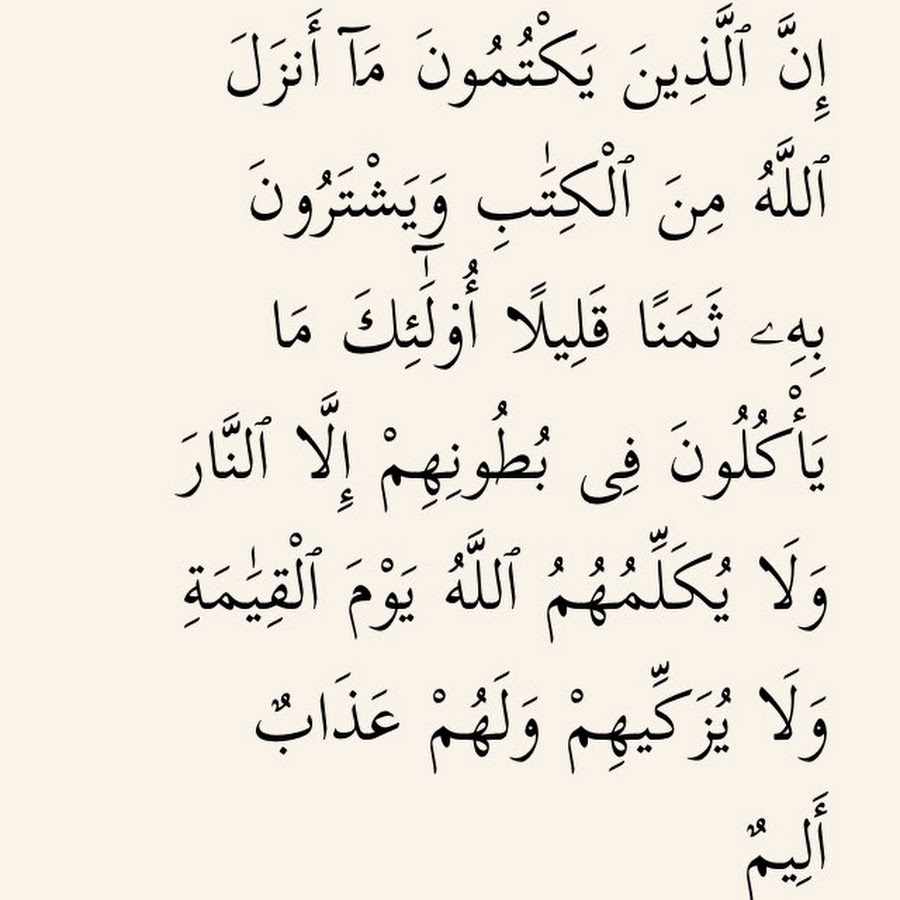 إِنَّ ٱلَّذِينَ يَكْتُمُونَ مَآ أَنزَلَ
ٱللَّهُ مِنَ ٱلْكِتَٰبِ وَيَشْتَرُونَ
بِهِۦ ثَمَنًا قَلِيلًا أُو۟لَٰٓئِكَ مَا
يَأْكُلُونَ فِى بُطُونِهِمْ إِلَّا ٱلنَّارَ
وَلَا يُكَلِّمُهُمُ ٱللَّهُ يَوْمَ ٱلْقِيَٰمَةِ
وَلَا يُزَكِّيهِمْ وَلَهُمْ عَذَابٌ
أَلِيمٌ